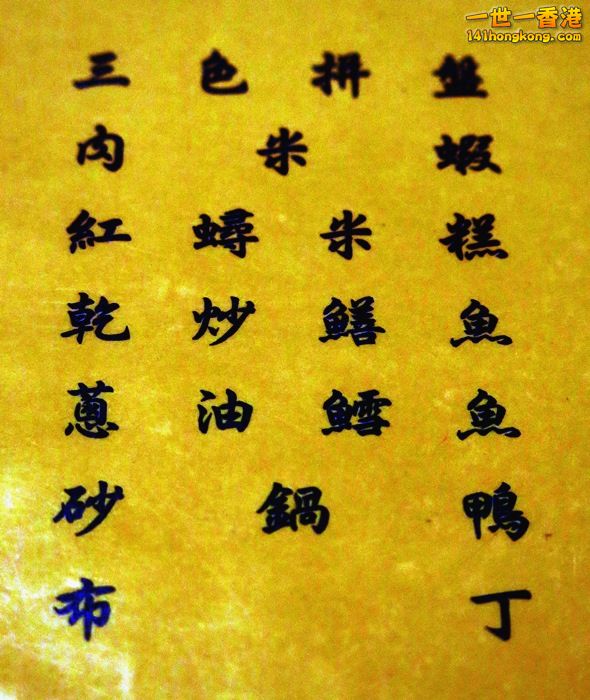 一世一香港
141hongkong.com
三色拼盤
肉米蝦
紅蟳米糕
乾炒鱔魚
蔥油鱈魚
砂鍋鴨
布丁